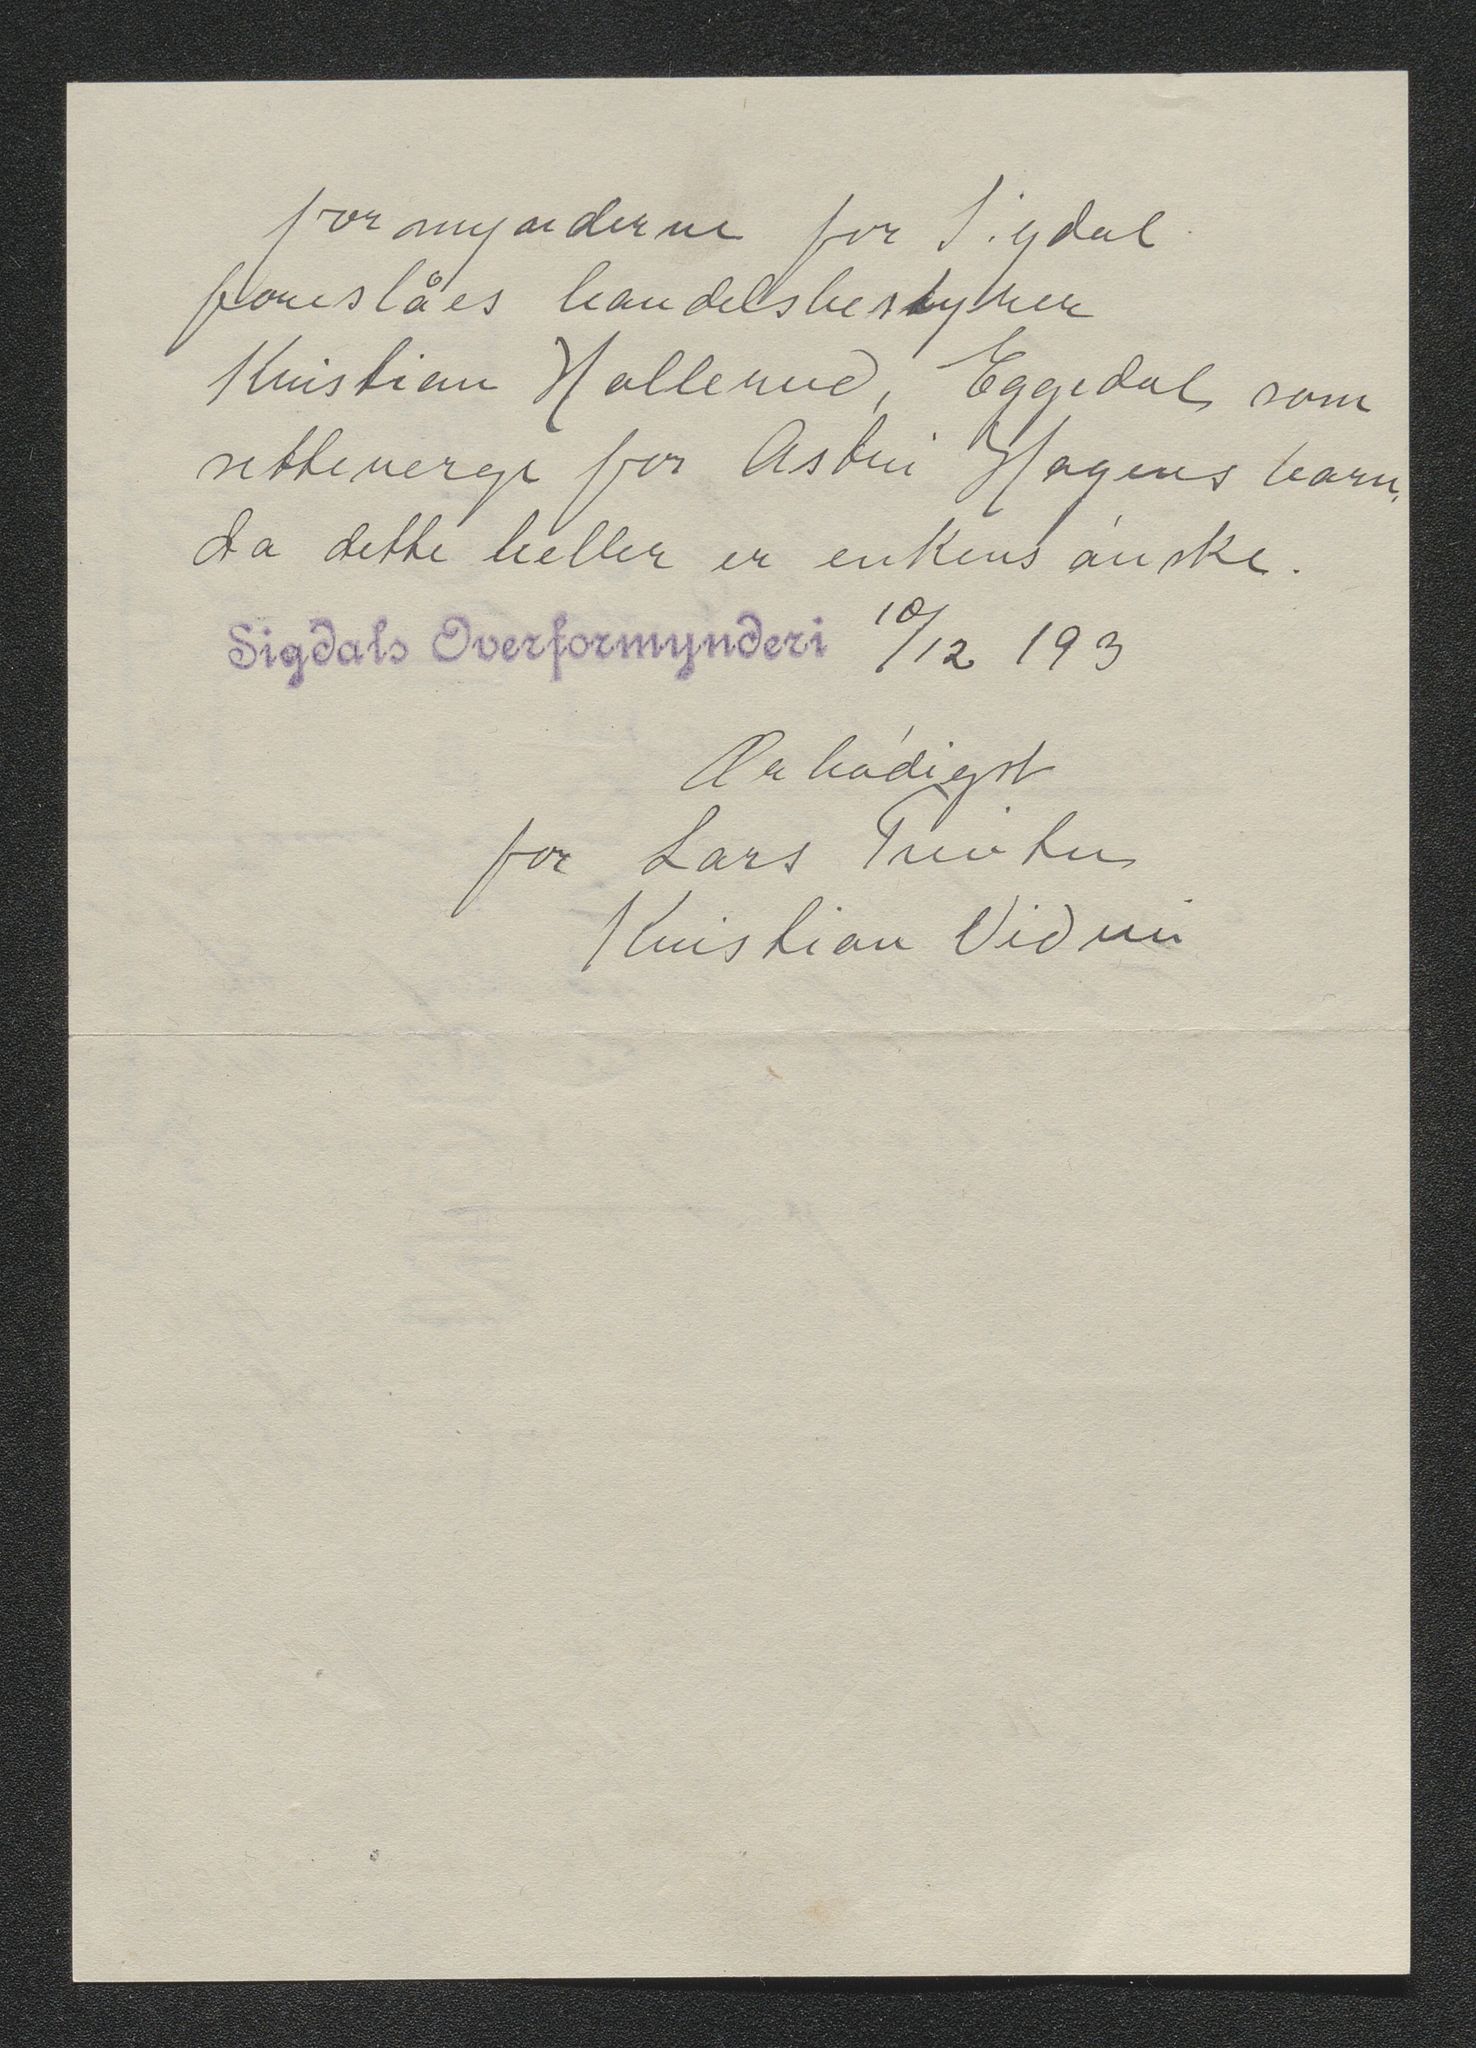 formynderne for Sigdal
foreslåes handelsbestyrer
Kristian Hallerud, Eggedal som
setteverge for Astri Hagens barn,
da dette heller er enkens ønske.
Sigdals Overformynderi 10/12 193
Ærbødigst
for Lars
Kristian